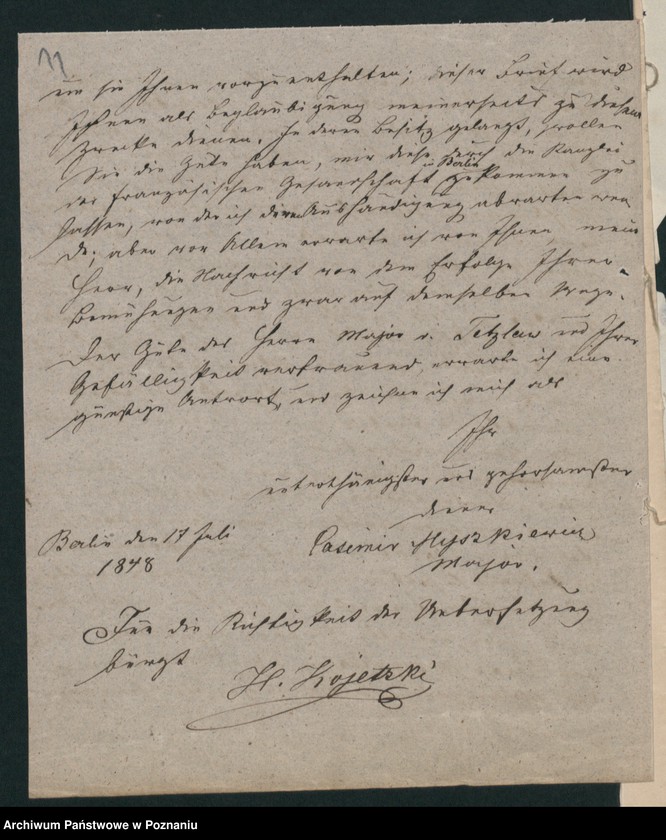 11
um sie Ihnen vorzuenthalten; dieser Brief wird
Ihnen als Beglaubigung meinerseits zu diesem
Zwecke dienen. In deren Besitz gelangt, wollen
Sie die Güte haben, mir diese durch die Kanzlei
der französischen Gesandschaft in Berlin zukommen zu
lassen, von der ich deren Aushändigung abwarten wer
de; aber vor Allem erwarte ich von Ihnen mein
Herr, die Nachricht von dem Erfolge Ihrer
Bemühungen und zwar auf demselben Wege.
Der Güte des Herrn Major v. Tetzlaw und Ihrer
Gefälligkeit vertrauend erwarte ich eine
günstige Antwort, und zeichne ich mich als
Ihr
unterthänigster und gehorsamster
Diener
Berlin den 17 Juli
1848
Casimir Myszkiewicz
Major.
Für die Richtigkeit der Uebersetzung
bürgt
H. Kojetzki
Archiwum Państwowe w Poznaniu